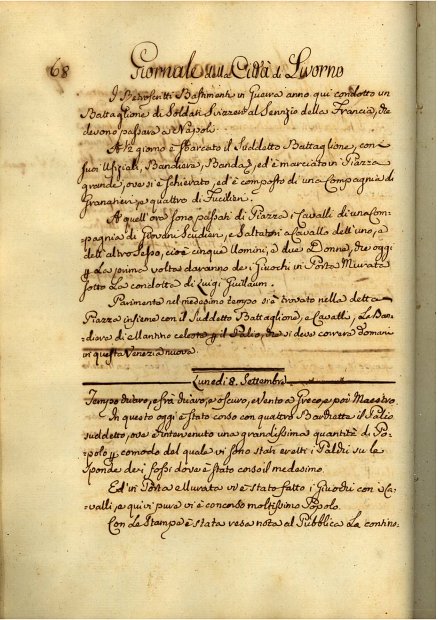 68 Giornale della Città di Livorno
I Retroscritti Bastimenti in Guerra anno qui condotto un
Battaglione di Soldati Svizzeri al Servizio della Francia, che
devono passare a Napoli.
A h2 giorno è sbarcato il Suddetto Battaglione, con
suoi Ufiziali, Bandiera, Banda, ed è marciato in Piazza
grande, ove si è schierato, ed è composto di una Compagnia di
Granatieri, e quattro di Fucilieri.
A quell'ora sono passati di Piazza i Cavalli di una Com=
=pagnia di Scudieri, e Saltatori a Cavallo dell'uno, e
dell'altro Sesso, cioè cinque Uomini, e due Donne, che oggi
p la prima volta daranno de i Giuochi in Porta Murata
sotto la condotta di Luigi Guilaum.
Parimente nel medesimo tempo si è trovato nella detta
Piazza insieme con il Suddetto Battaglione, e Cavalli, la Ban=
=diera di allantino celeste p il Palio, che si deve correre domani
in questa Venezia nuova.
Lunedì 8. Settembre
Tempo chiaro, e frà chiaro, e oscuro, e vento a Greco, e poi Maestro.
In questo oggi è stato corso con quattro Barchette il Palio
suddetto, ove è intervenuto una grandissima quantità di Po=
=polo p comodo del quale vi sono stati eretti i Palchi su le
sponde de i fossi dove è stato corso il medesimo.
Ed in Porta Murata vi è stato fatto i Giuochi con i Ca=
=valli, e quivi pure vi è concorso moltissimo Popolo.
Con le Stampe è stata resa nota al Pubblico la contino=